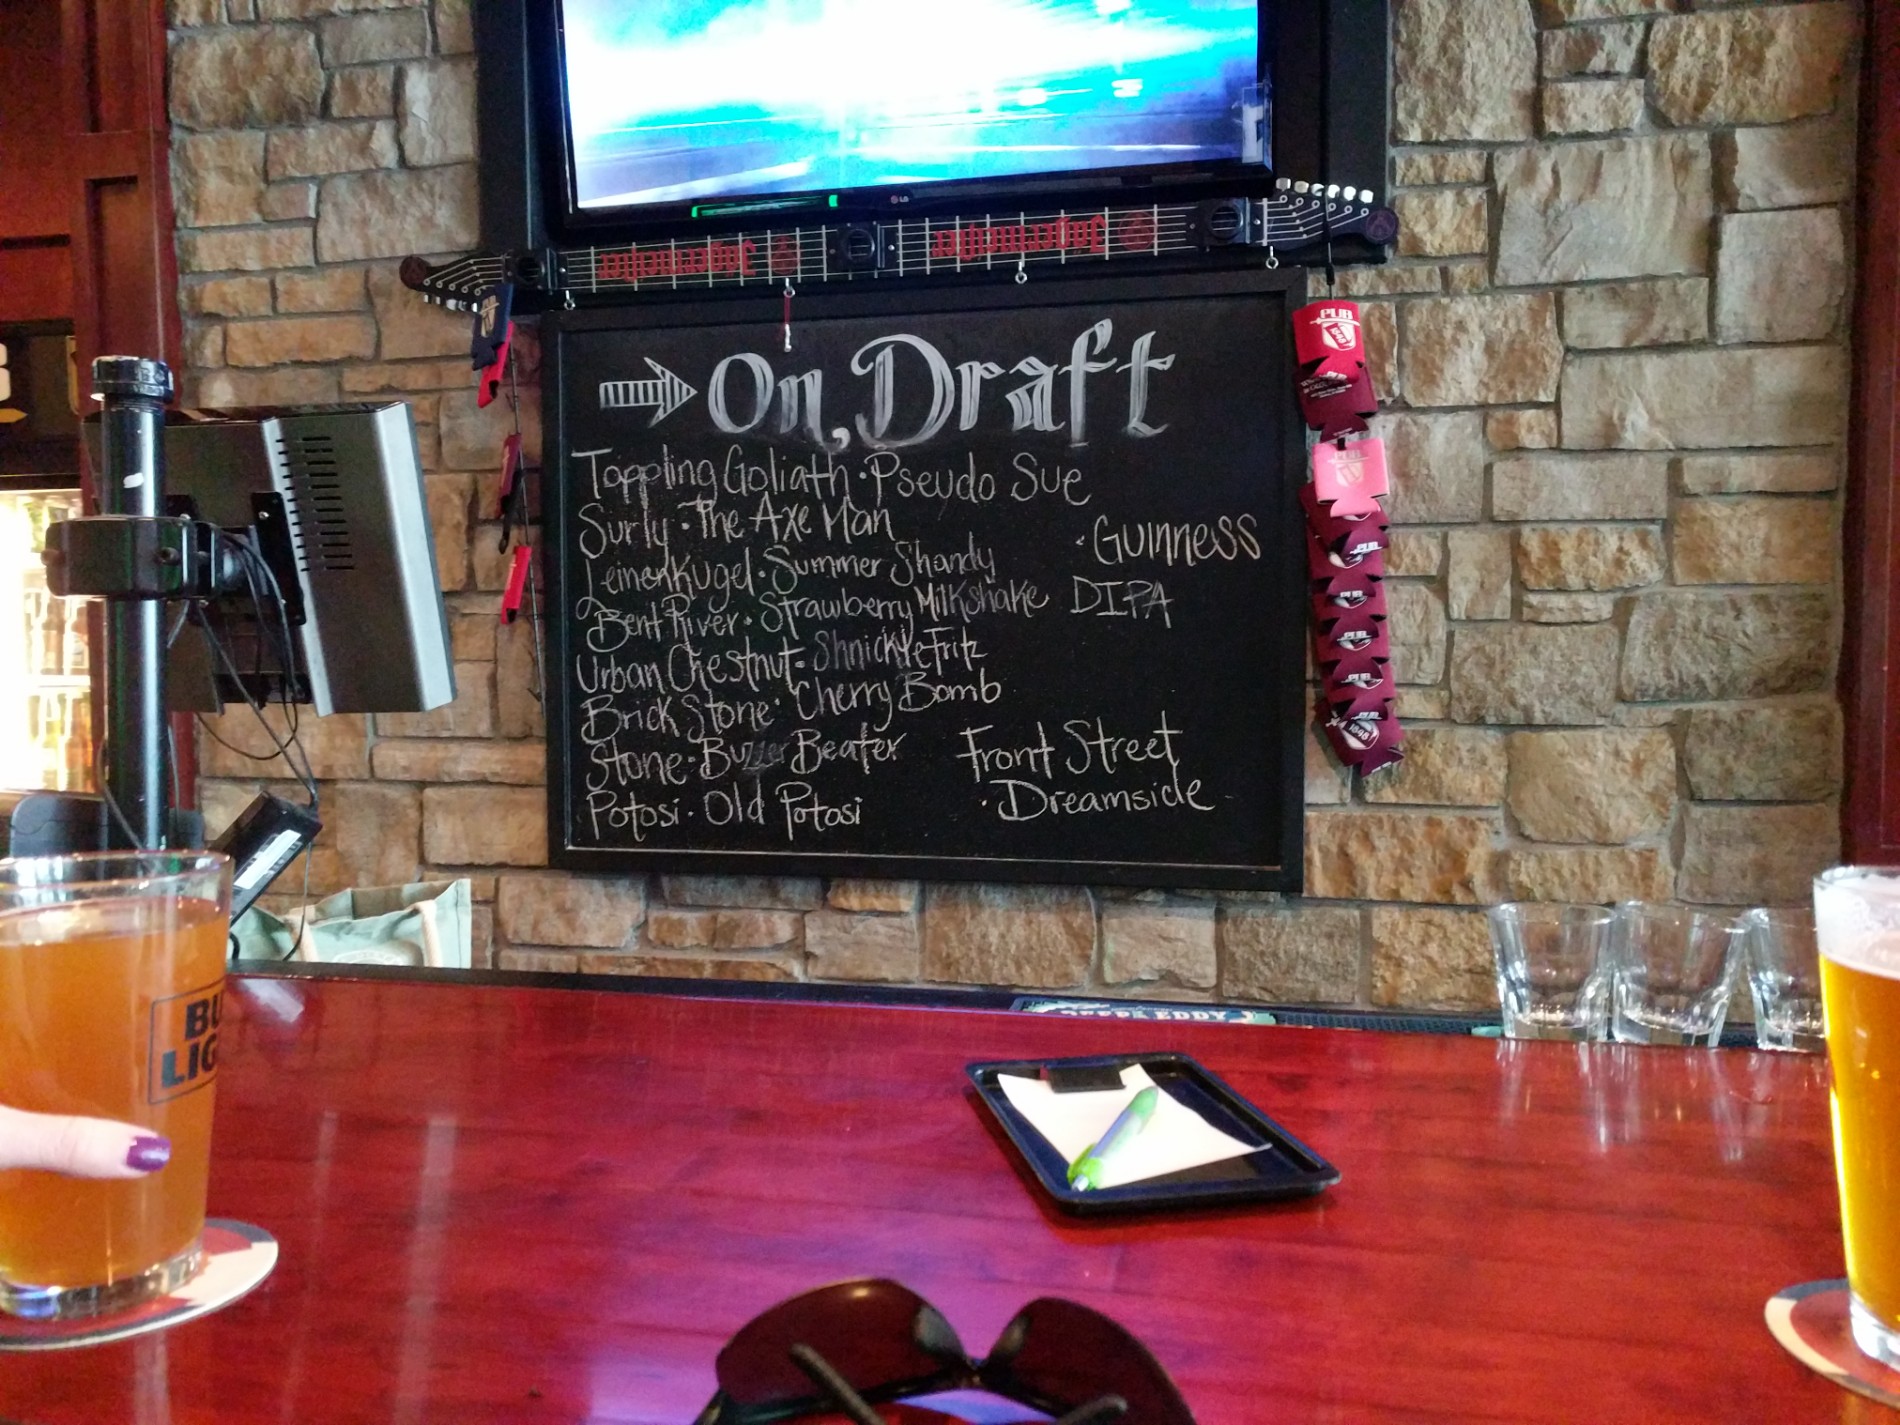 LG
Jägermeister
Jägermeister
On, Draft
Toppling Goliath · Pseudo Sue
Surly · The Axe Man
· Guinness
Leinenkugel · Summer Shandy
Bent River · Strawberry Milkshake DIPA
Urban Chestnut · Shnickle Fritz
Brick Stone · Cherry Bomb
Stone · Buzzer Beater
Front Street
Potosi · Old Potosi
· Dreamsicle
PUB
1848
PUB
PUB
PUB
PUB
PUB
PUB
1848
BU
LIG
DEEP EDDY